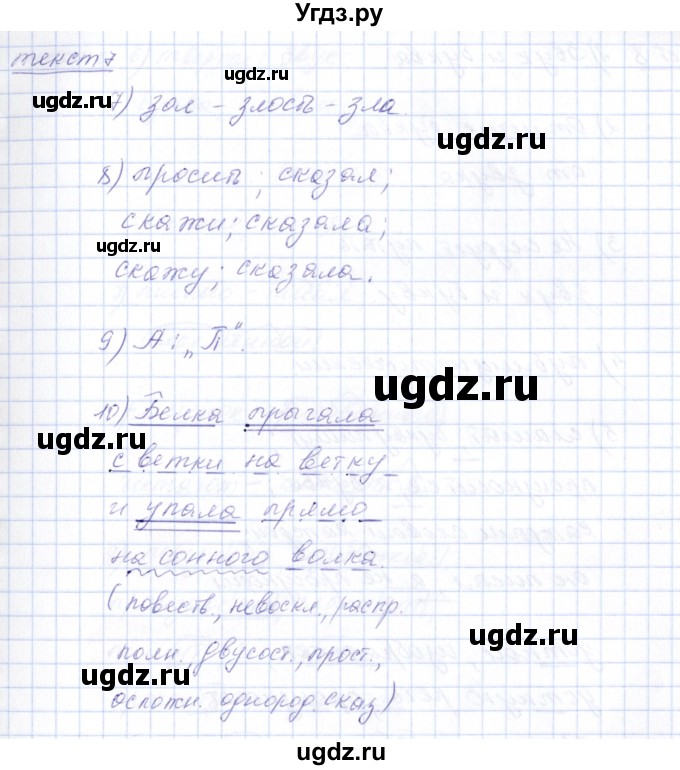 Угдз.ру
текст 7
7) зол – злость – зла.
8) просить; сказал;
скажи; сказала;
скажу; сказала.
9) А: „П“.
10) Белка прыгала
с ветки на ветку
и упала прямо
на сонного волка.
(повеств., невоскл., распр.
полн., двусост., прост.,
осложн. однород. сказ)
ugdz.ru
ugdz.ru
ugdz.ru
ugdz.ru
ugdz.ru
ugdz.ru
ugdz.ru
ugdz.ru
ugdz.ru
ugdz.ru